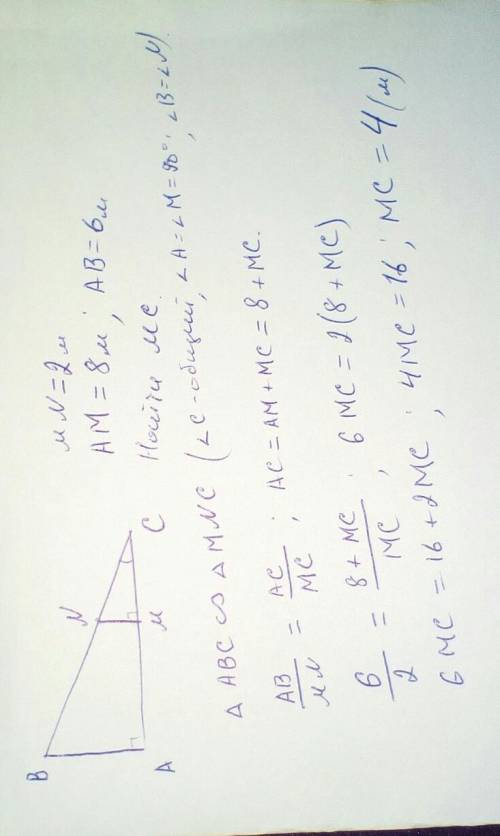 B
N
A
M
C
MN = 2м
AM = 8м ; AB = 6м
Найти MC.
△ ABC ∽ △ MNC (∠C - общий, ∠A = ∠M = 90° ; ∠B = ∠N).
AB/MN = AC/MC ; AC = AM + MC = 8 + MC.
6/2 = 8 + MC/MC ; 6 MC = 2(8 + MC)
6 MC = 16 + 2MC ; 4MC = 16 ; MC = 4 (м)